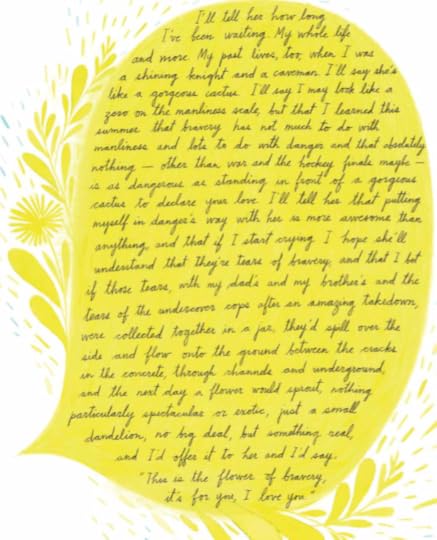 I'll tell her how long
I've been waiting. My whole life
and more. My past lives, too, when I was
a shining knight and a caveman. I'll say she's
like a gorgeous cactus. I'll say I may look like a
zero on the manliness scale, but that I learned this
summer that bravery has not much to do with
manliness and lots to do with danger and that absolutely
nothing – other than war and the hockey finals maybe –
is as dangerous as standing in front of a gorgeous
cactus to declare your love. I'll tell her that putting
myself in danger's way with her is more awesome than
anything, and that if I start crying I hope she'll
understand that they're tears of bravery, and that I bet
if those tears, with my dad's and my brother's and the
tears of the undercover cops after an amazing takedown,
were collected together in a jar, they'd spill over the
side and flow onto the ground between the cracks
in the concrete, through channels and underground,
and the next day a flower would sprout, nothing
particularly spectacular or exotic, just a small
dandelion, no big deal, but something real,
and I'd offer it to her and I'd say,
"This is the flower of bravery,
it's for you, I love you."